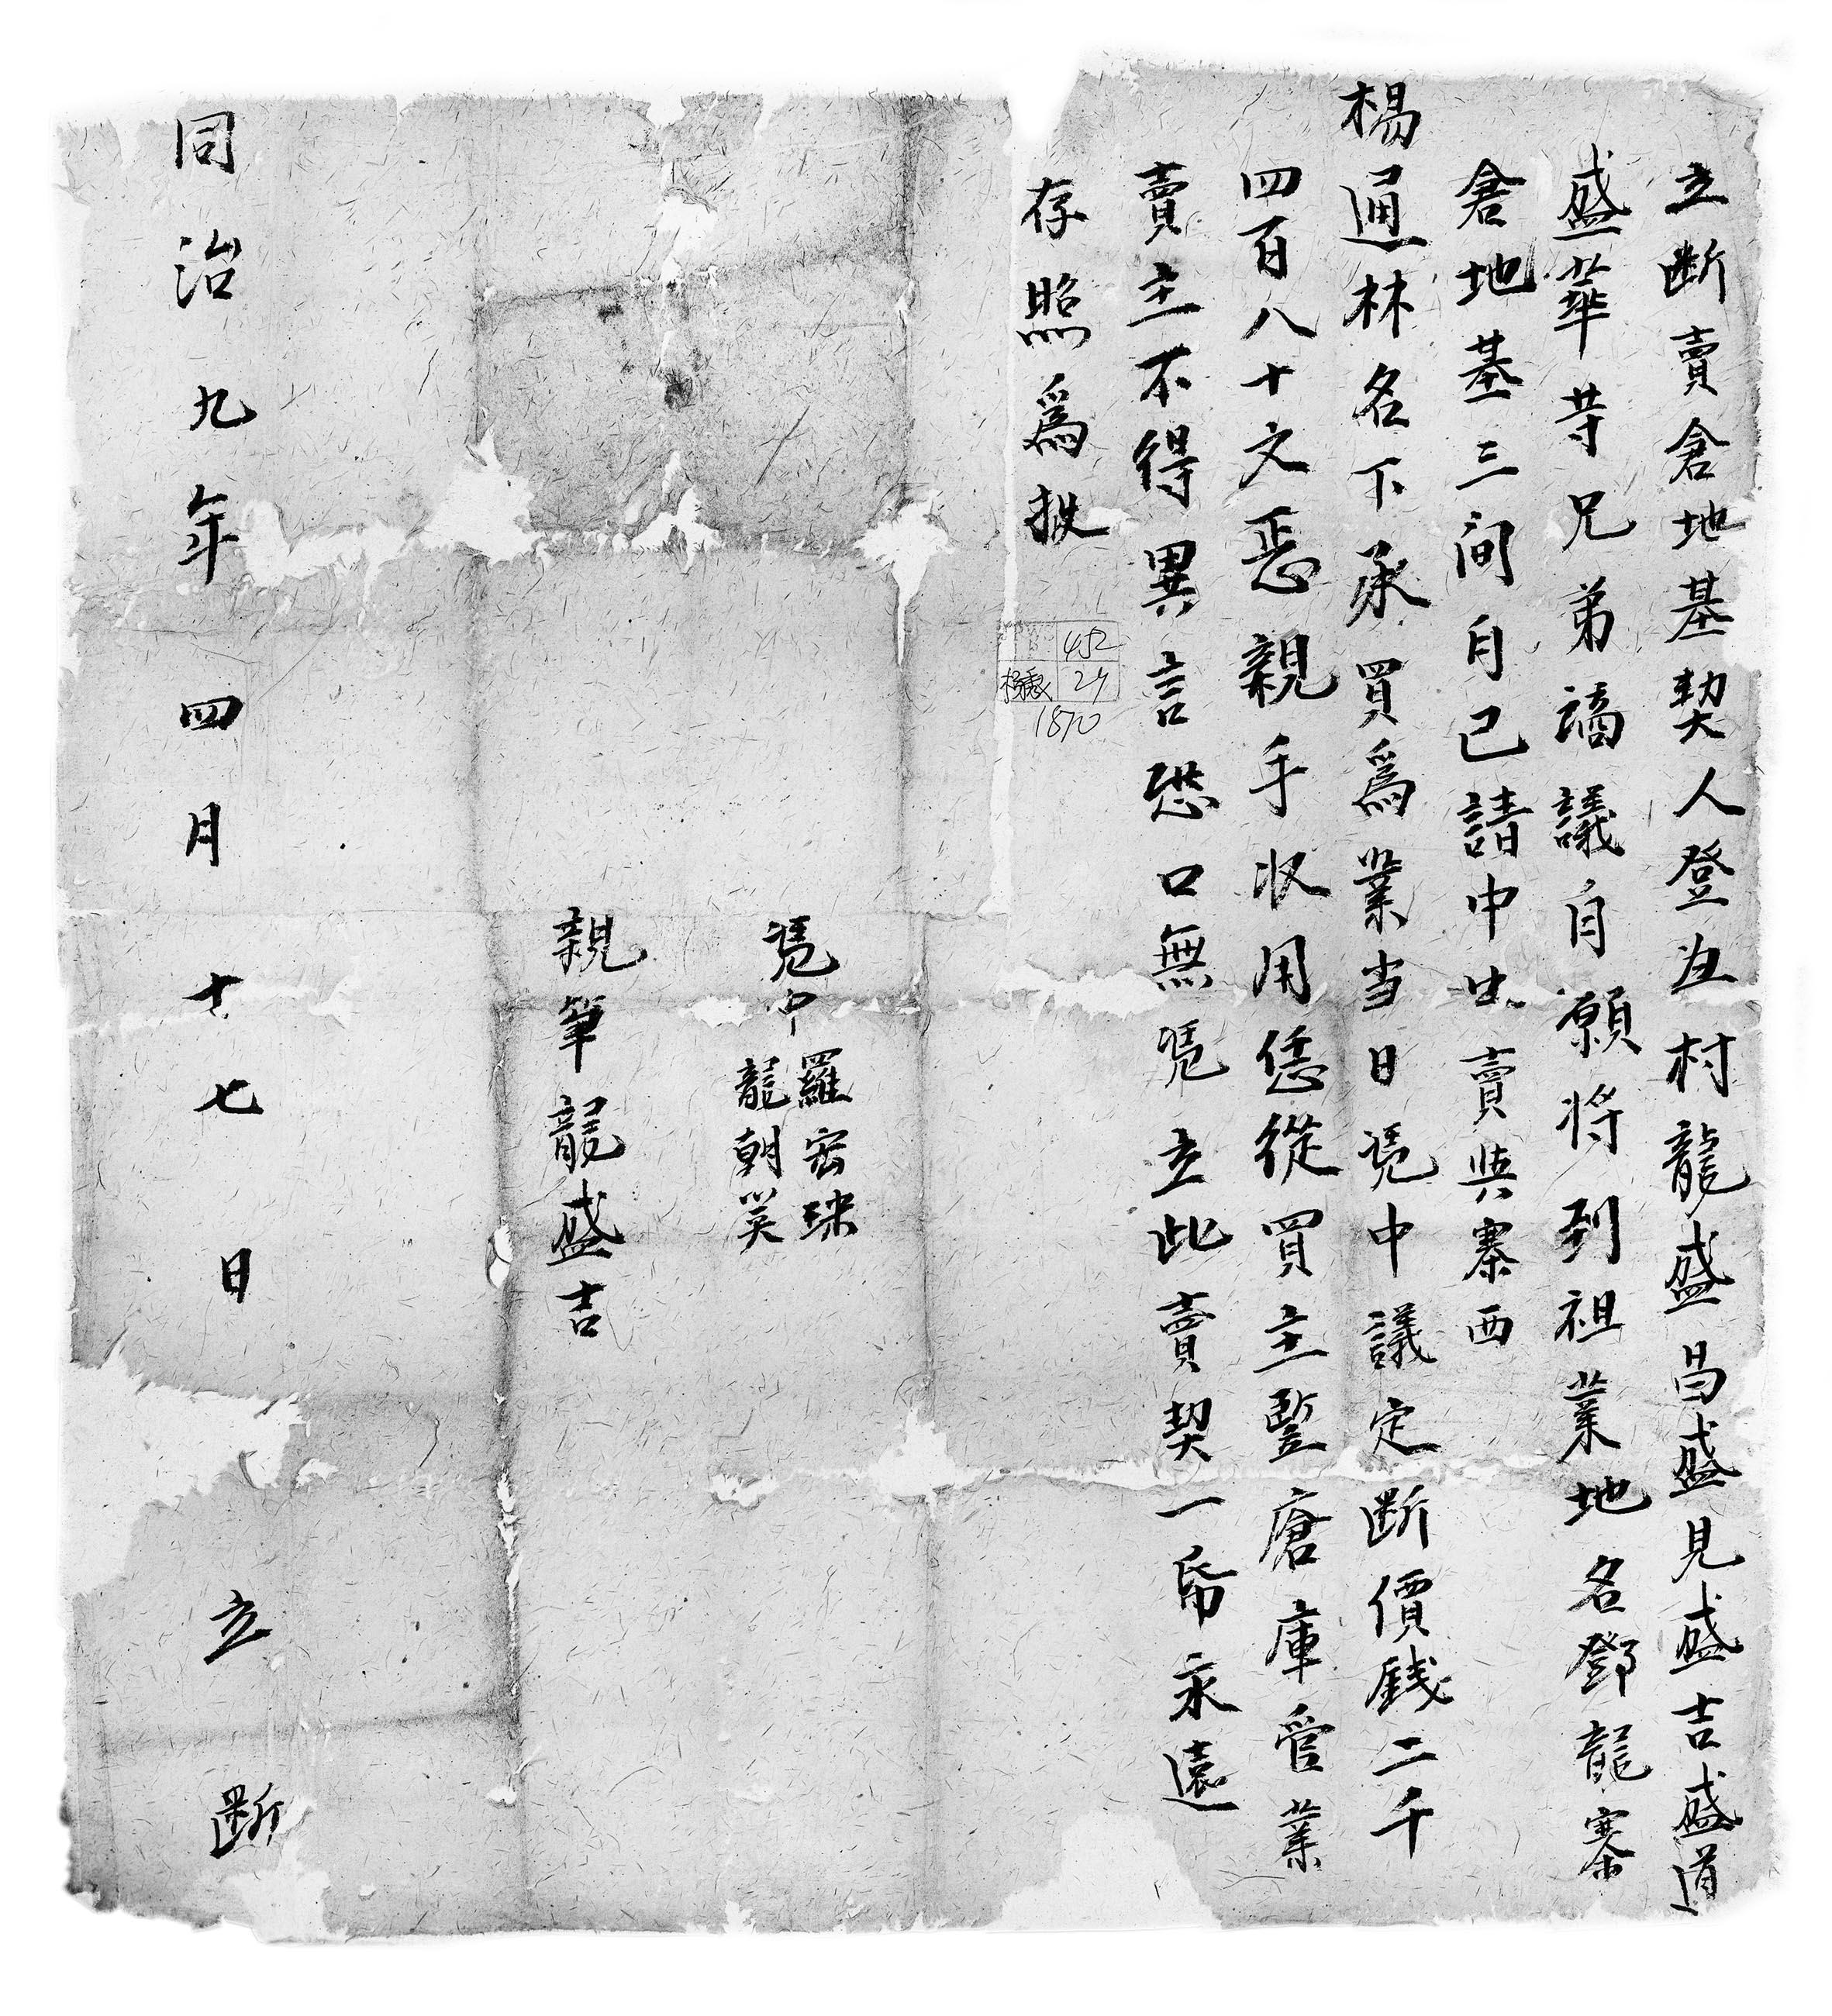 立断賣倉地基契人登丑村龍盛昌盛見盛吉盛道
盛華等兄弟謪議自願将到祖業地名鄧龍寨
倉地基三间自己請中出賣與寨西
楊通林名下承買爲業当日凴中議定断價錢二千
四百八十文㤙親手収用恁從買主竪廒庫管業
賣主不得異言恐口無凴立此賣契一帋永遠
存照爲挗
452
24
1870
凴中 羅宏球
龍朝英
親筆龍盛吉
同治九年四月十七日立断